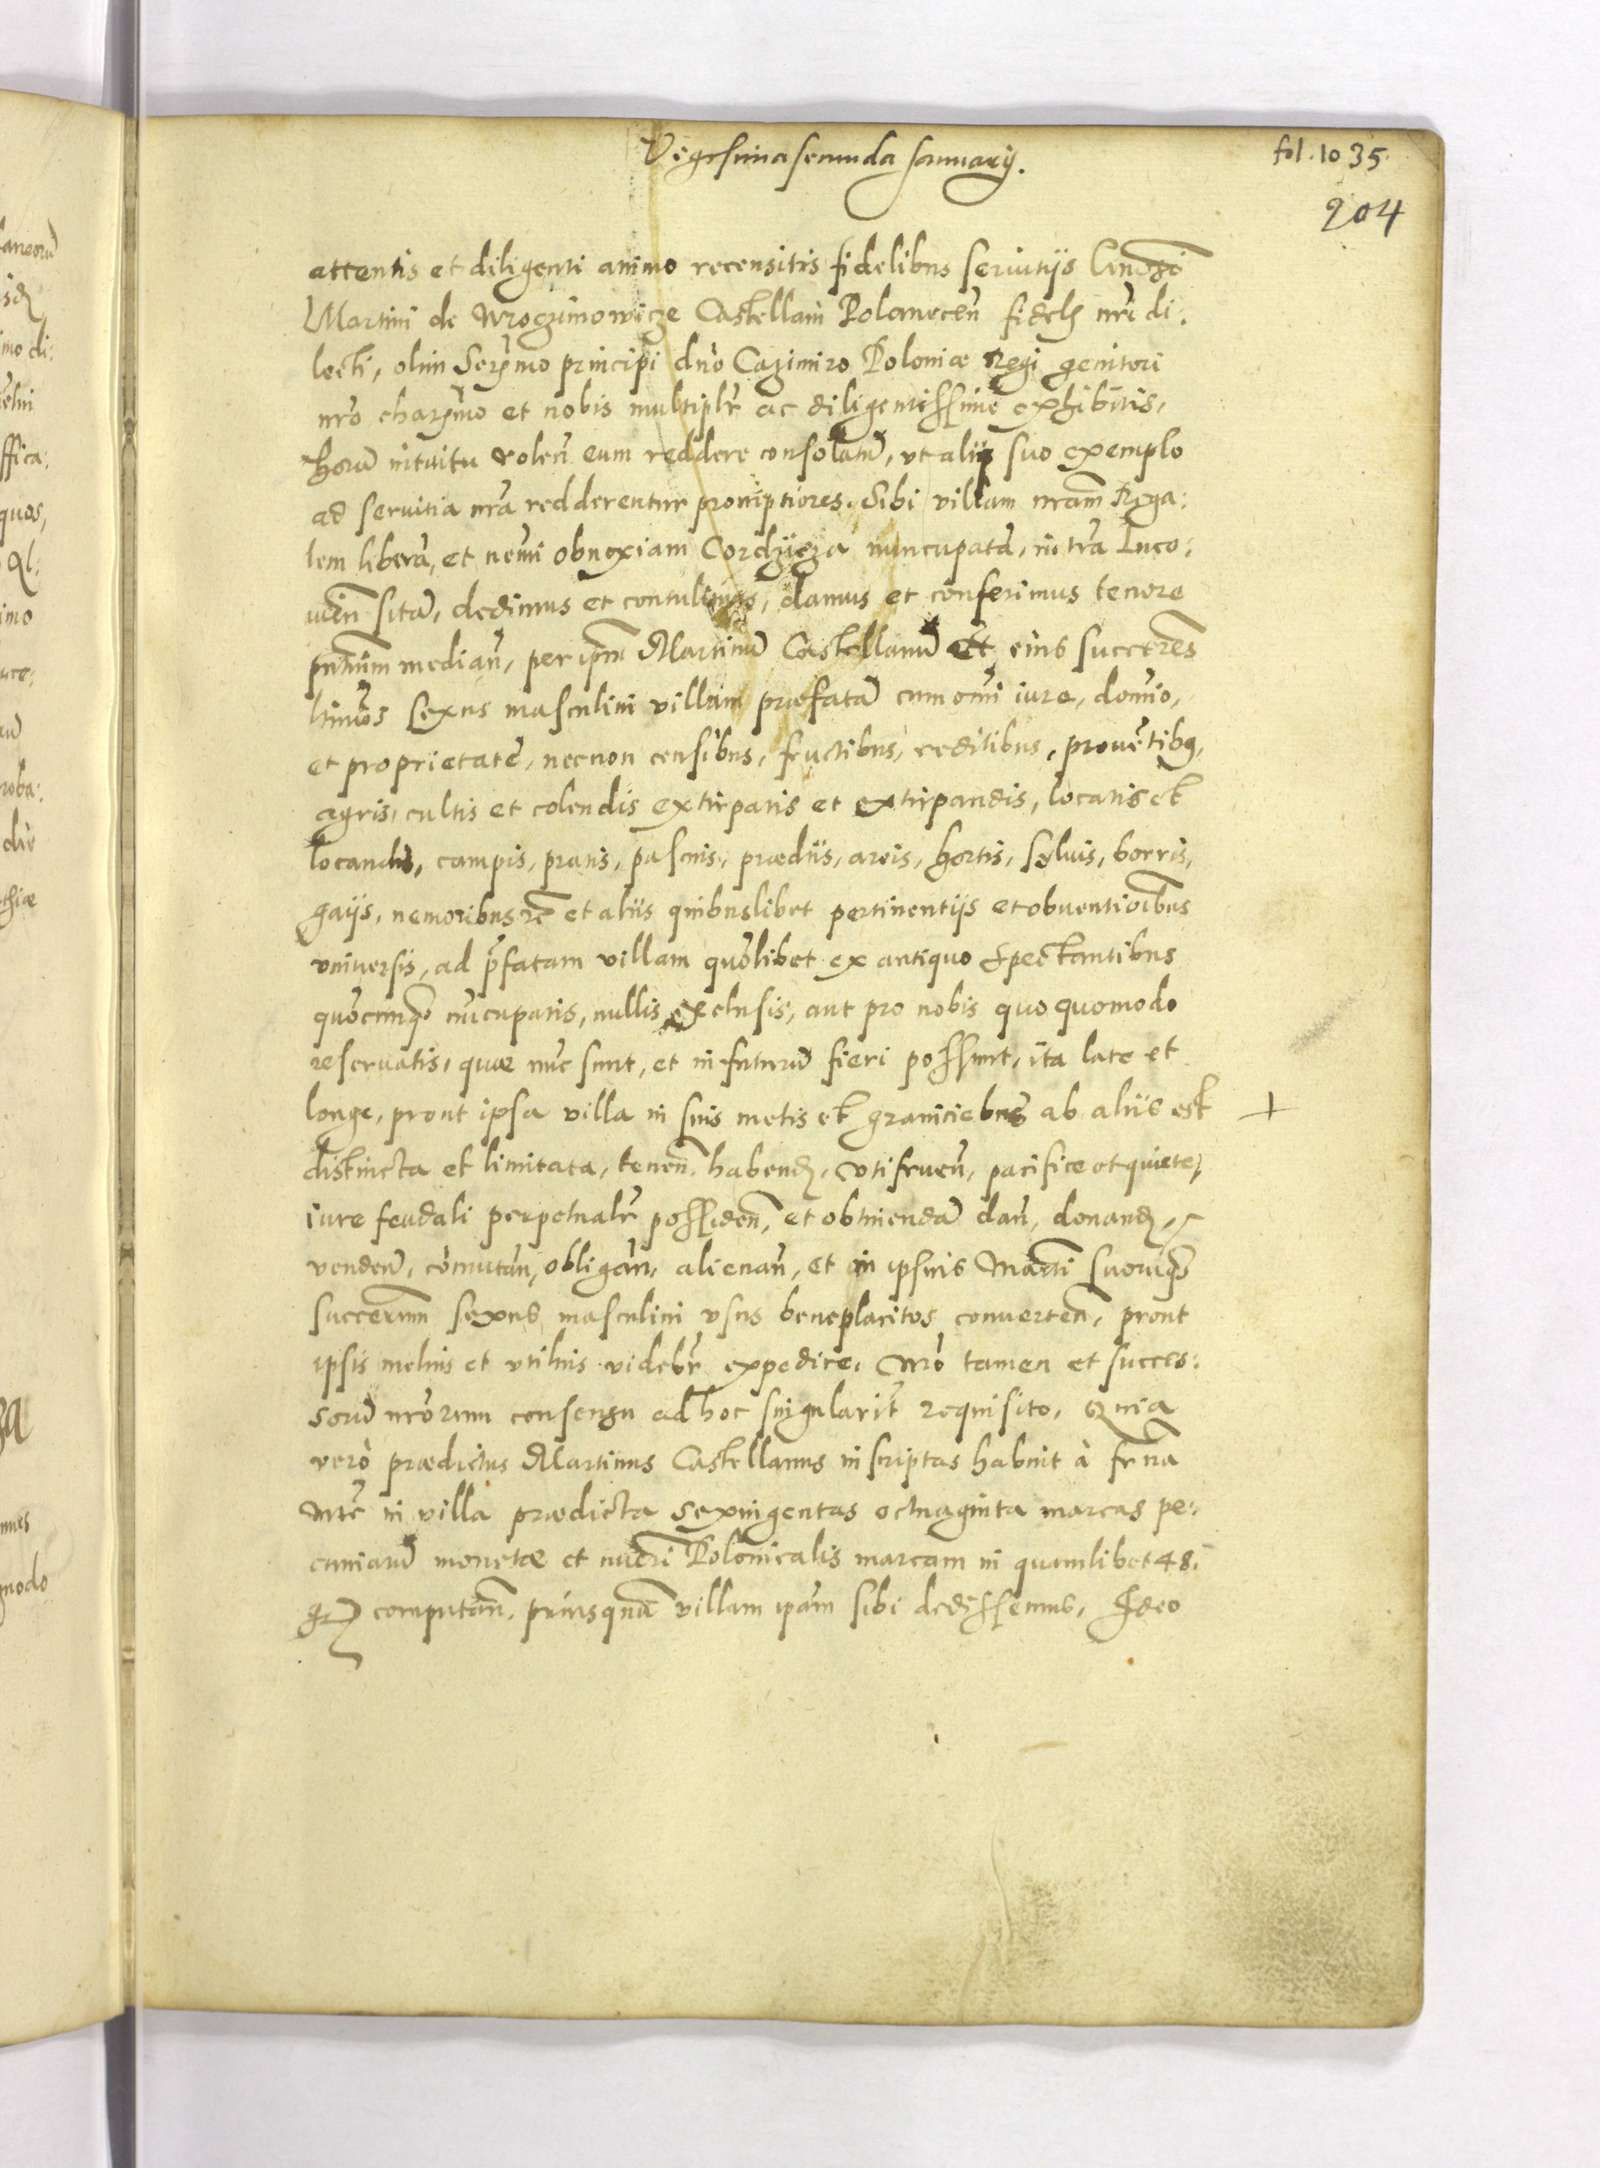 Vigesima secunda Januarij.
fol. 1035.
204
attentis et diligenti animo recensitis fidelibus seruitijs
Martini de Wrozimowicze Castellani Polanecen̄ fidelis nr̄i di:
lecti, olim Ser̄mo principi dn̄o Cazimiro Poloniæ Regi genitori
nr̄o char̄mo et nobis multiplr̄ ac diligentissime exhibitis,
horū intuitu volen̄ eum reddere consolatū, vt alij suo exemplo
ad seruitia nr̄a redderentur promptiores. Sibi villam nr̄am Rega:
lem liberā, et nemi obnoxiam Corczicza nuncupatā, in tr̄a Luco:
uien̄ sitā, dedimus et contulimus, damus et conferimus tenore
pn̄tium median̄, per ipm̄ Martinū Castellanū et eius succr̄es
ltimos sexus masculini villam præfatā cum omni iure, domio,
et proprietate, necnon censibus, fructibus, reditibus, prouētibq,
agris, cultis et colendis extirpatis et extirpandis, locatis et
locandis, campis, pratis, pascuis, prædiis, areis, hortis, syluis, borris,
gaijs, nemoribus et aliis quibuslibet pertinentijs et obuentioībus
vniuersis, ad p̄fatam villam quolibet ex antiquo spectantibus
quocunq̄ nūcupatis, nullis exclusis, aut pro nobis quoquomodo
reseruatis, quæ nūc sunt, et in futurū fieri possunt, ita late et
longe, prout ipsa villa in suis metis et graniciebus ab aliis est +
distincta et limitata, tenen̄. habend. vtifruen̄, pacifice et quiete,
iure feudali perpetualr̄ possiden̄, et obtinendā dan̄, donand,
venden̄, cōmutan̄, obligan̄, alienan̄, et in ipsius Martī suorūq̄
succr̄um sexus masculini vsus beneplacitos conuerten̄, prout
ipsis melius et vtilius videbr̄ expedire. Nr̄o tamen et succes:
sorū nr̄orum consensu ad hoc singularit̄ requisito. Quia
verò prædictus Martinus Castellanus inscriptas habuit à
in villa prædicta sexingentas octuaginta marcas pe:
cuniarū monetæ et nueri Polonicalis marcam in quamlibet 48.
computan̄. priusquā villam ipam sibi dedissemus, Ideo